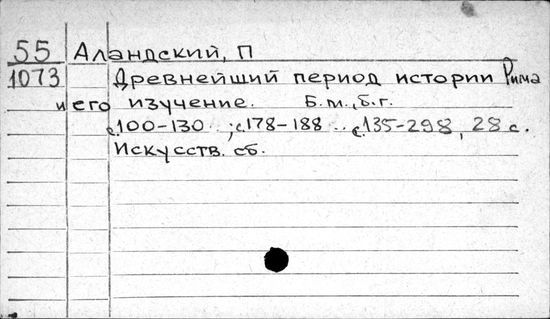 55 Аландский, П
1073 Древнейший период истории Рима
и его изучение. Б.м., б.г.
с.100-130 ..; с.178-188 .. с.135-298, 28 с.
Искусств. сб.